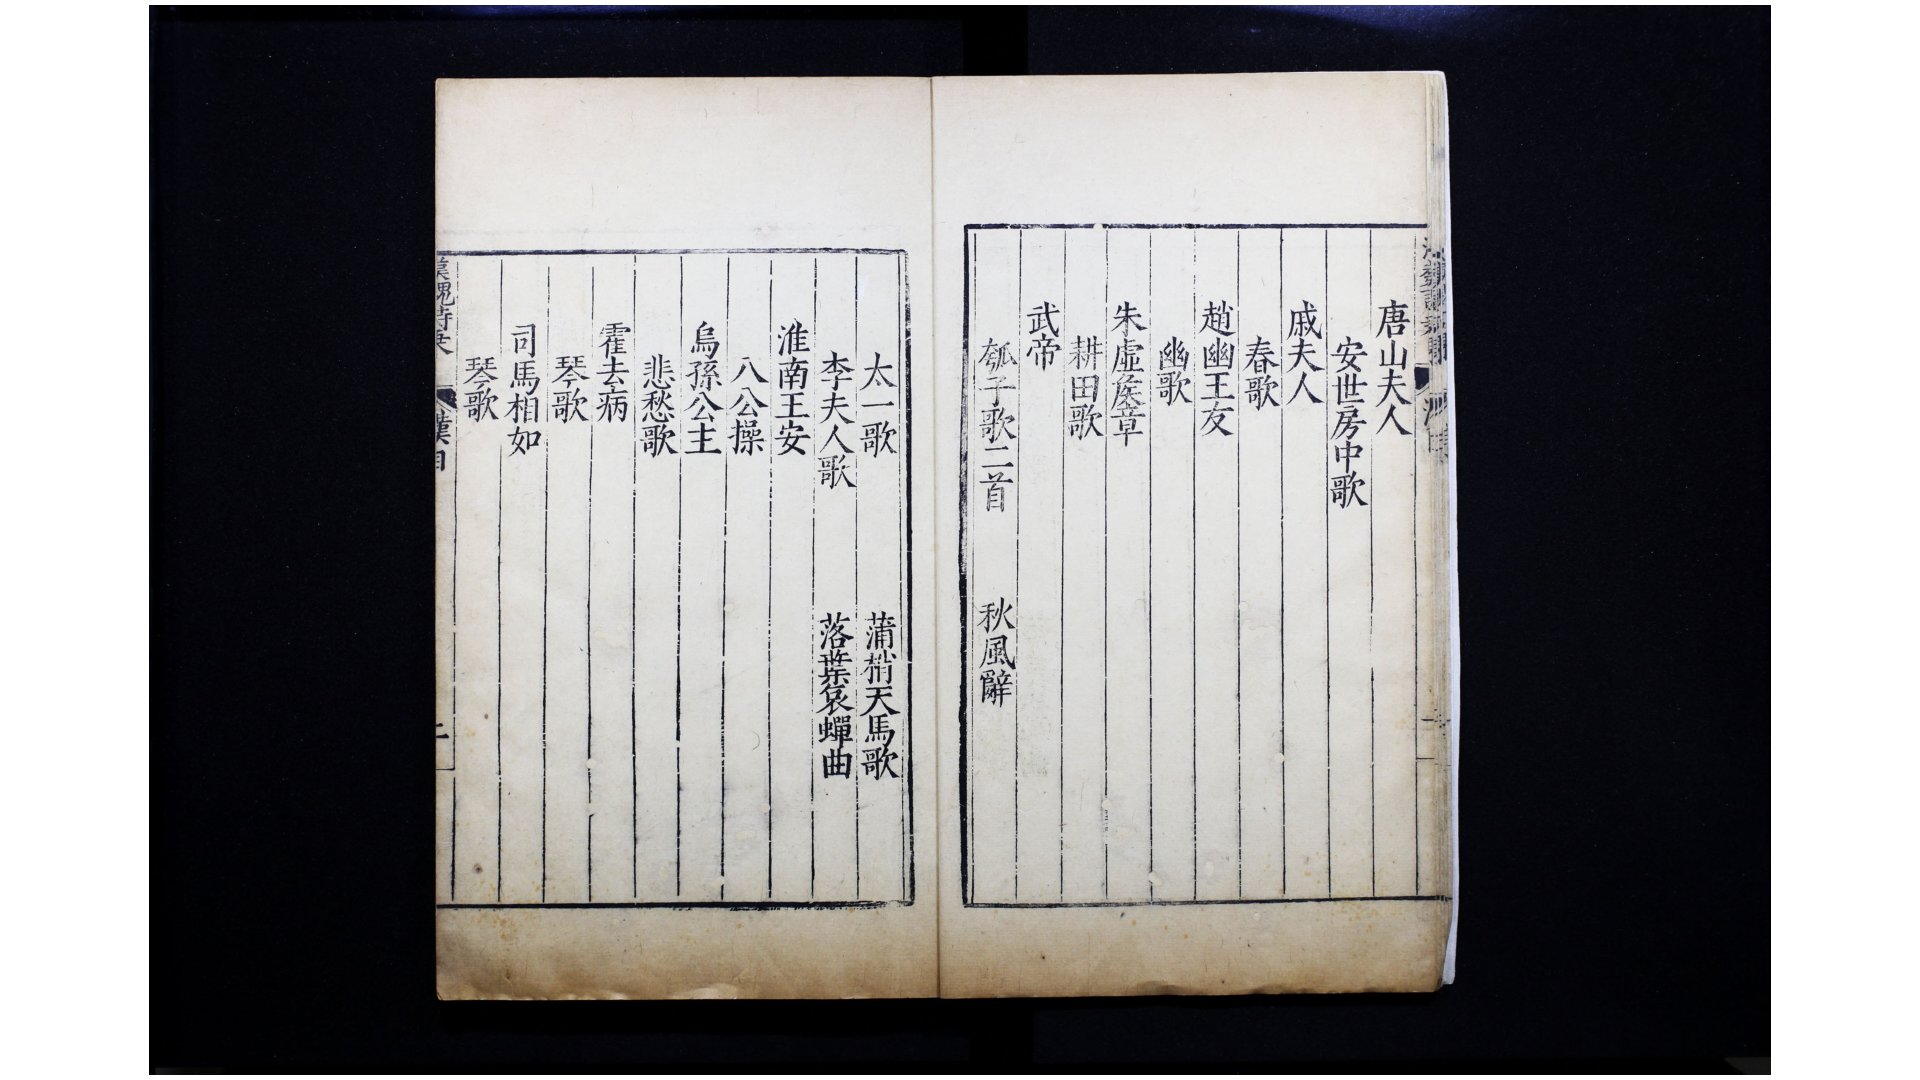 唐山夫人
安世房中歌
戚夫人
春歌
趙幽王友
幽歌
朱虛矦章
耕田歌
武帝
瓠子歌二首 秋風辭
太一歌 蒲梢天馬歌
李夫人歌 落葉哀蟬曲
淮南王安
八公操
烏孫公主
悲愁歌
霍去病
琴歌
司馬相如
琴歌
漢魏詩乗 漢目